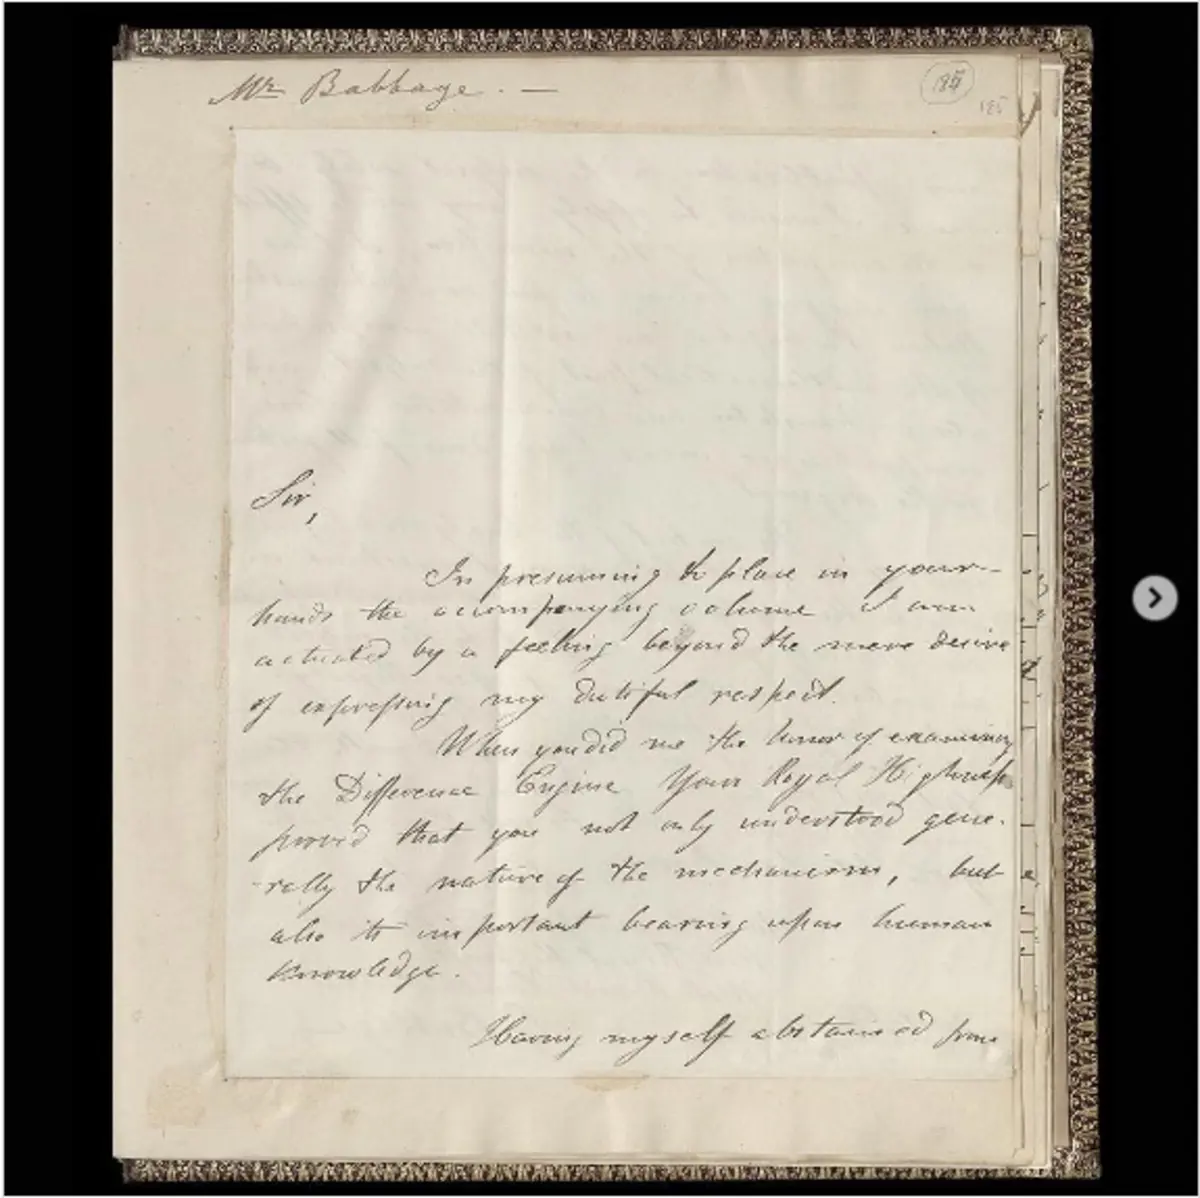 Mr Babbage. —
185
Sir,
In presuming to place in your
hands the accompanying volume I am
actuated by a feeling beyond the mere desire
of expressing my dutiful respect.
When you did me the honor of examining
the Difference Engine Your Royal Highness
proved that you not only understood gene-
rally the nature of the mechanism, but
also its important bearing upon human
knowledge.
Having myself abstained from